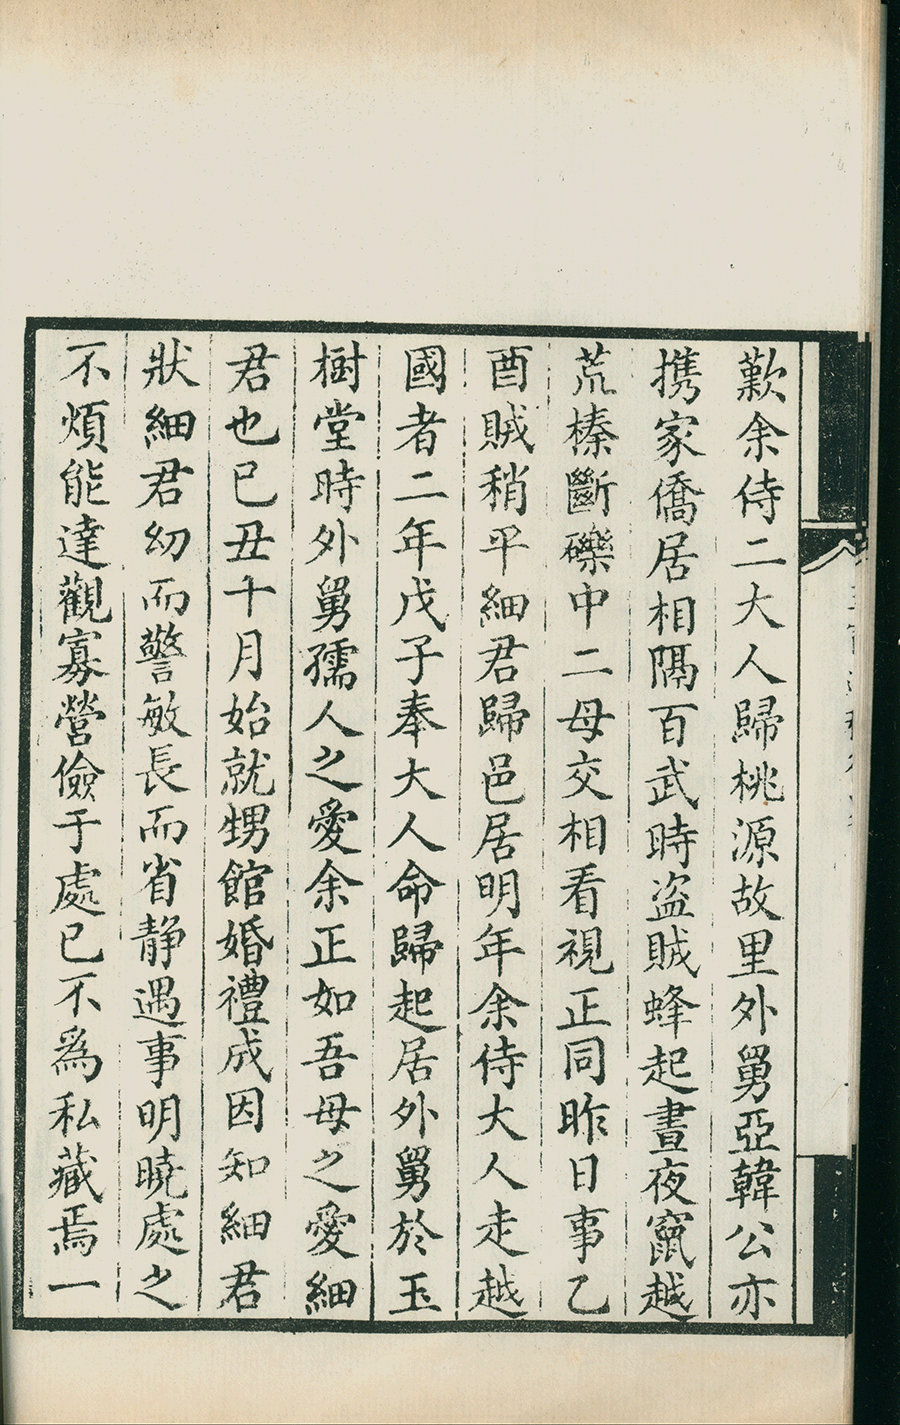 歎余侍二大人歸桃源故里外舅亞韓公亦
携家僑居相隔百武時盜賊蜂起晝夜竄越
荒榛斷礫中二母交相看視正同昨日事乙
酉賊稍平細君歸邑居明年余侍大人走越
國者二年戊子奉大人命歸起居外舅於玉
樹堂時外舅孺人之愛余正如吾母之愛細
君也已丑十月始就甥館婚禮成因知細君
狀細君幼而警敏長而省靜遇事明曉處之
不煩能達觀寡營儉于處已不爲私藏焉一